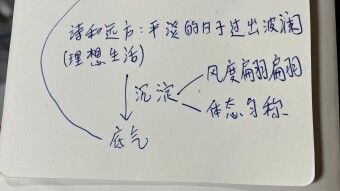 诗和远方：平淡的日子过出波澜
(理想生活)
沉淀
风度翩翩
体态匀称
底气